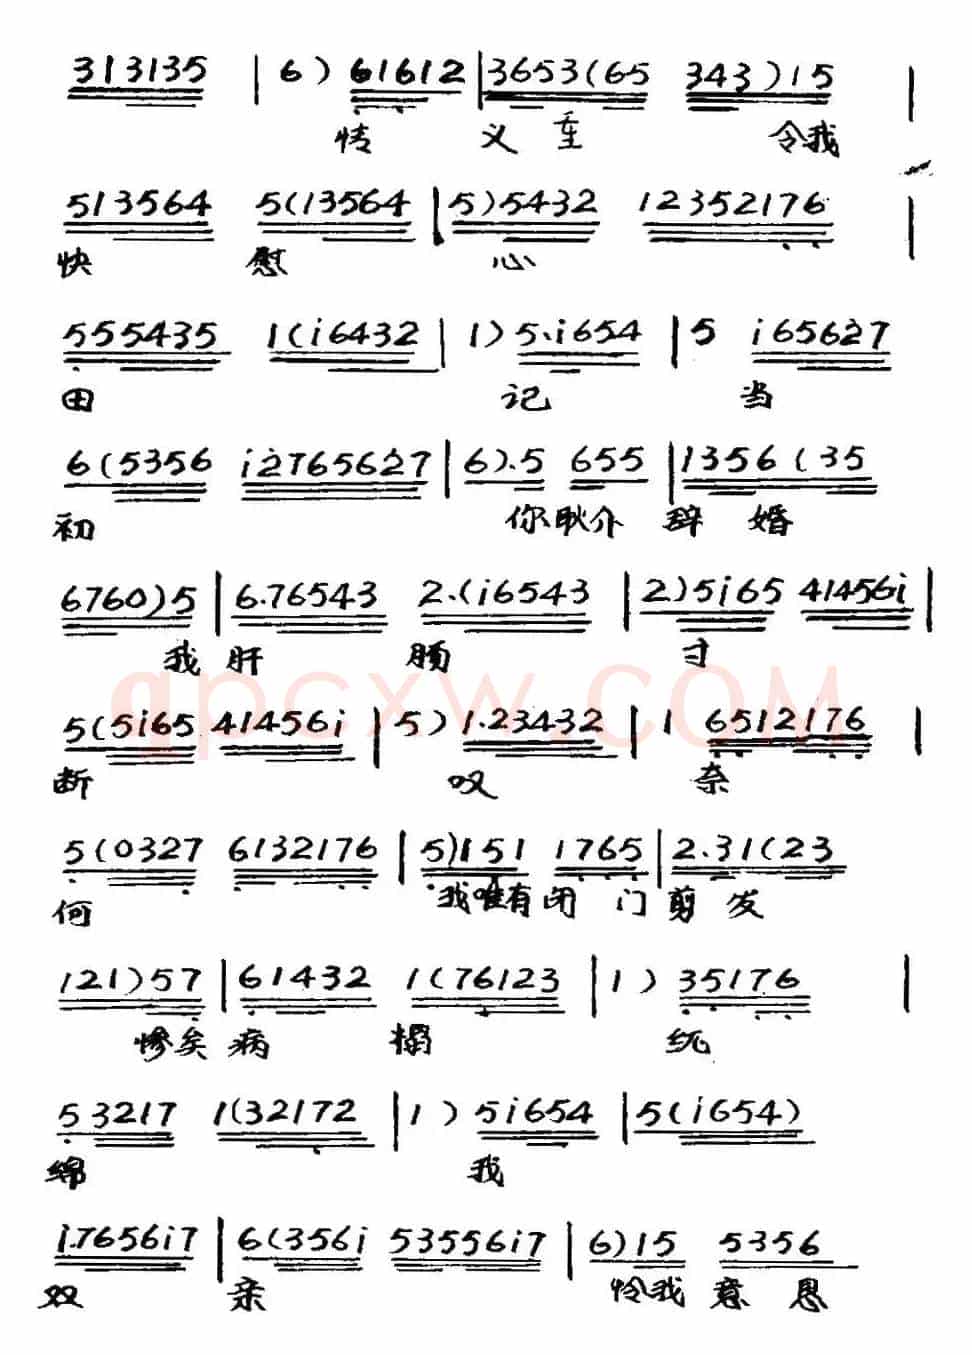 313135 | 6) 61612 | 3653(65 343)15 |
情 义 重 令我
513564 5(13564 | 5)5432 12352176 |
快 慰 心
555435 1(i6432 | 1) 5.i654 | 5 i65627
田 记 当
6(5356 i2765627 | 6).5 655 | 1356(35
初 你耿介 辞 婚
6760)5 | 6.76543 2.(i6543 | 2)5i65 41456i |
我 肝 肠 寸
5(5i65 41456i | 5) 1.23432 | 1 6512176 |
断 叹 奈
5(0327 6132176 | 5)151 1765 | 2.31(23
何 我唯有闭 门 剪 发
121)57 | 61432 1(76123 | 1) 35176 |
惨矣 病 榻 缠
53217 1(32172 | 1) 5i654 | 5(i654)
绵 我
i.7656i7 | 6(356i 53556i7 | 6)15 5356
双 亲 怜我 意 恩
qpcxw.COM